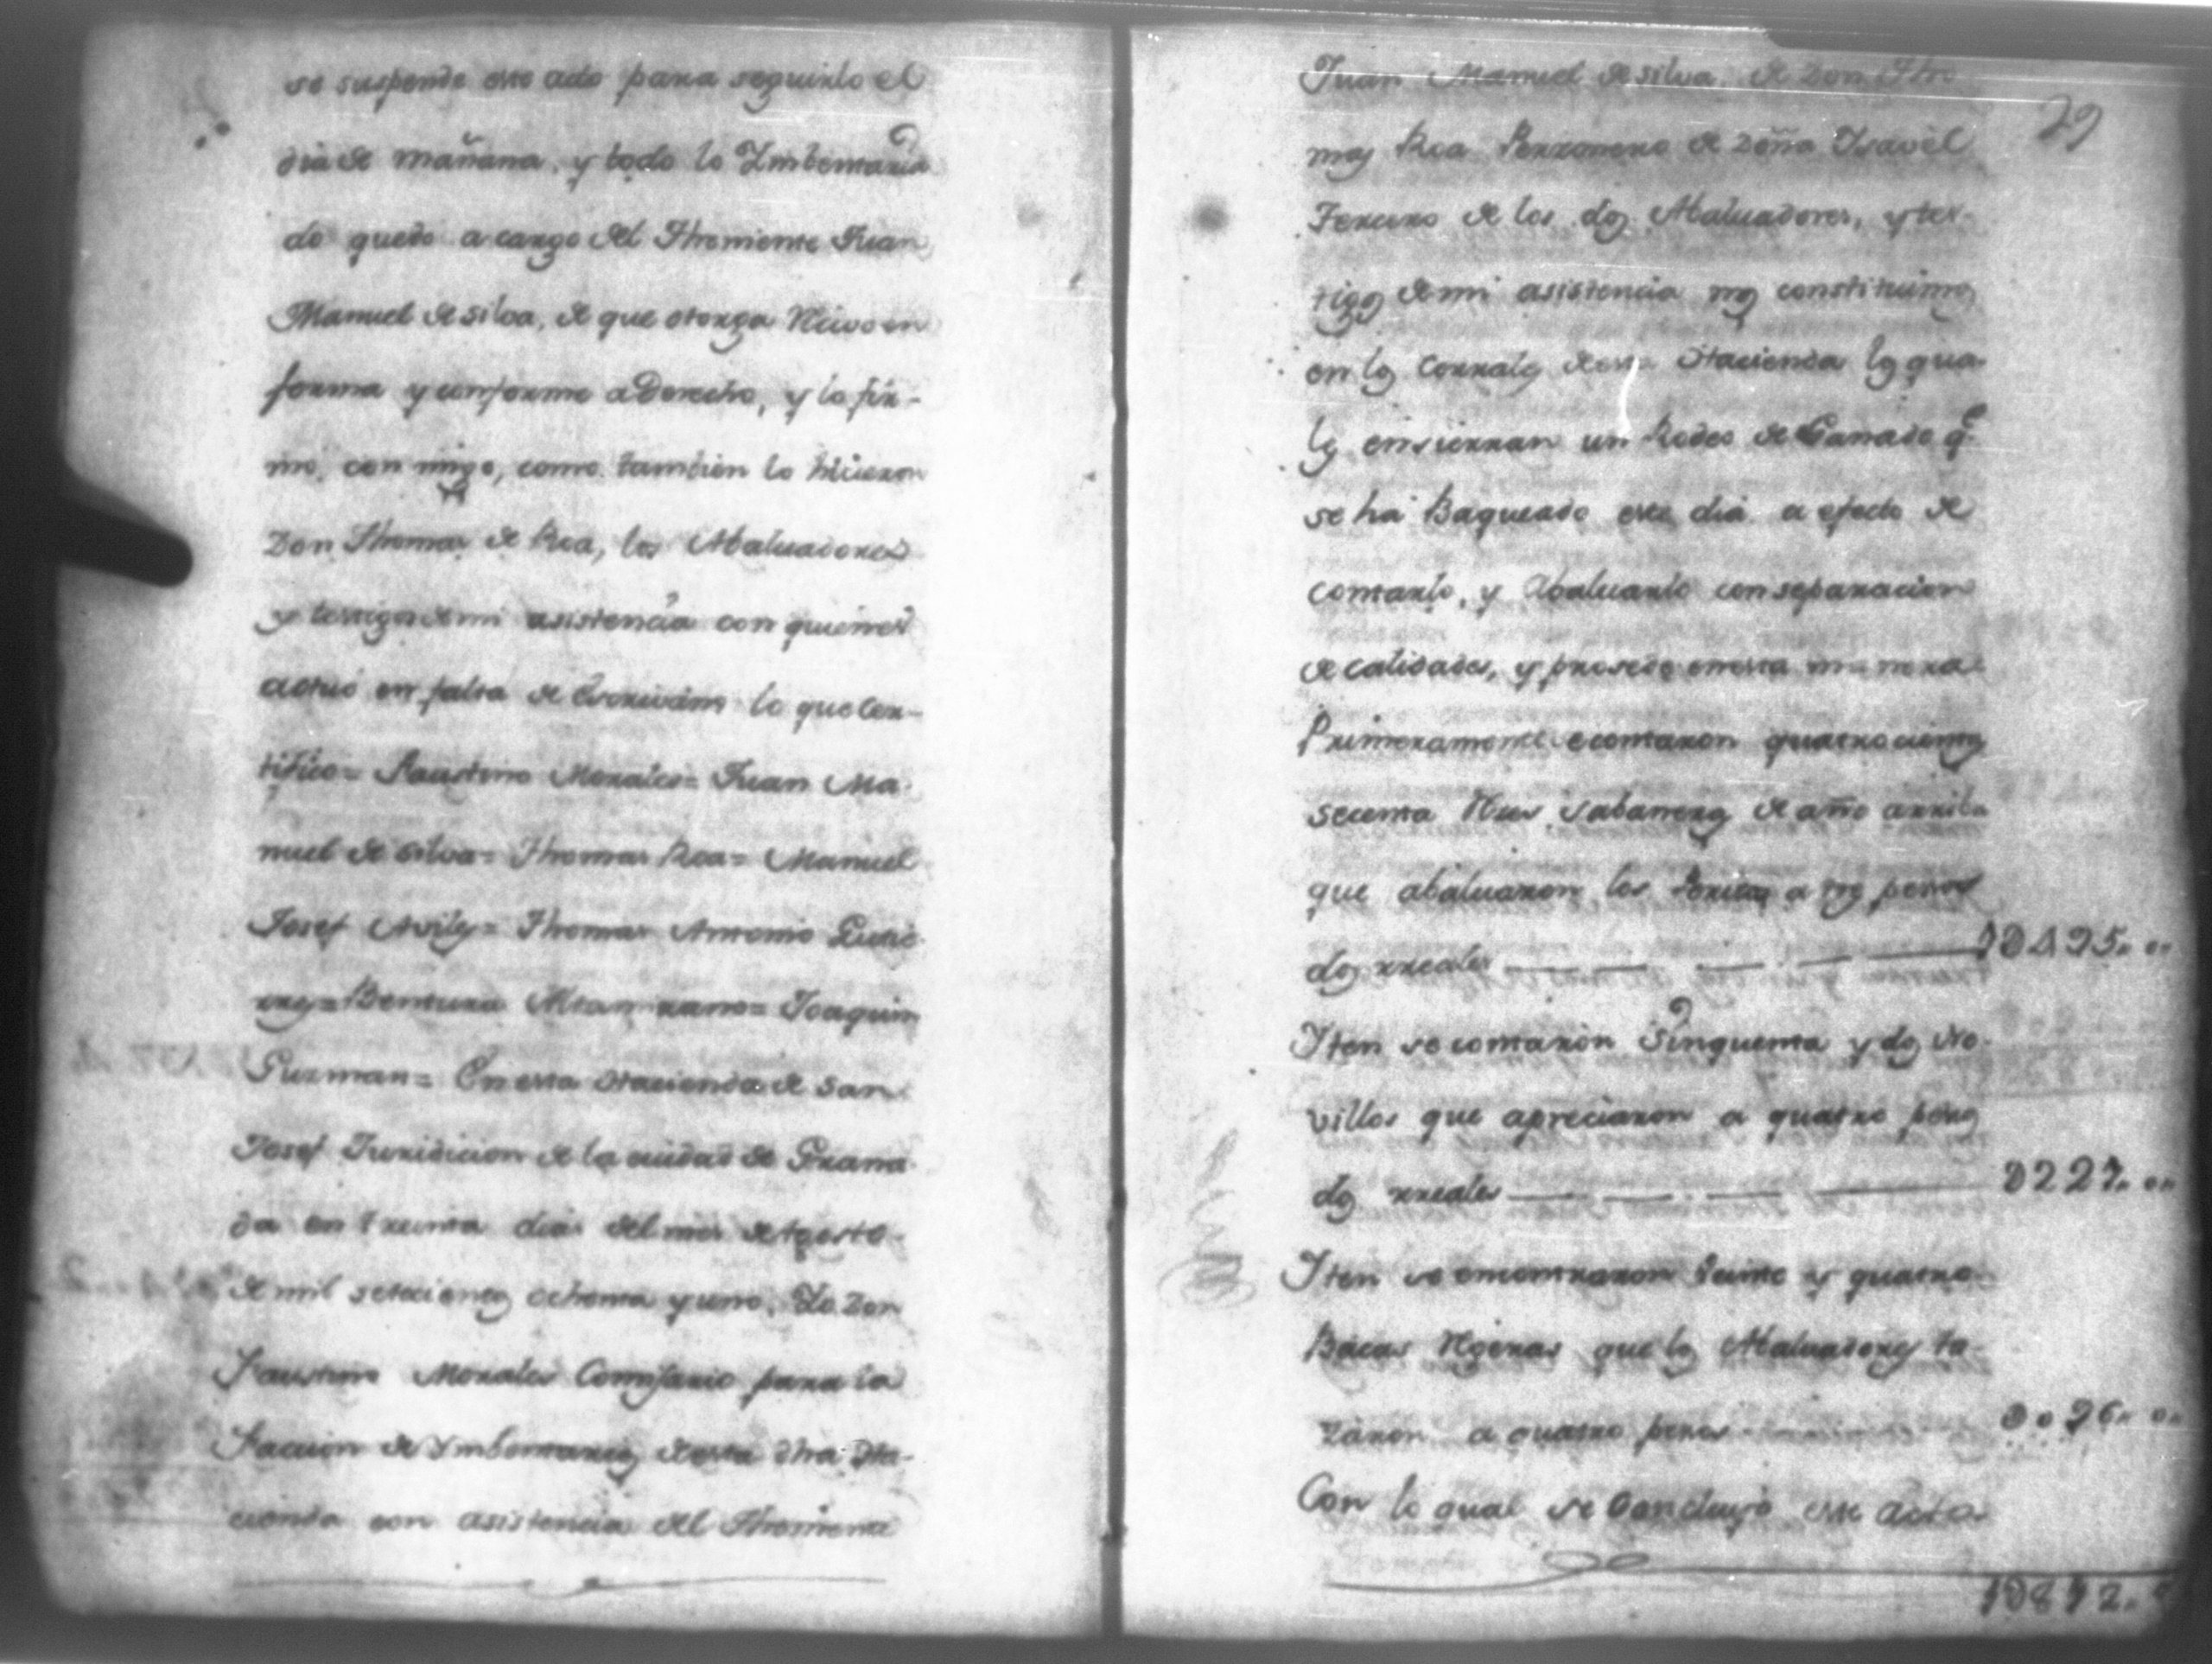 se suspende este acto para seguirlo el
dia de mañana, y todo lo Imbentaria
do quedo a cargo del Theniente Juan
Manuel de silva, de que otorga Recivo en
forma y conforme a Derecho, y lo fir-
mó, con migo, como tambien lo hicieron
Don Thomas de Roa, los Abaluadores
y testigos de mi asistencia con quienes
actuó en falta de Escrivano lo que cer-
tifico= Faustino Morales= Juan Ma-
nuel de silva= Thomas Roa= Manuel
Josef Aviles= Thomas Antonio Gutie-
rres= Bentura Altamirano= Joaquin
Guzman= En esta Hacienda de San
Josef Juridicion de la ciudad de Grana-
da en treinta dias del mes de Agosto
de mil setecientos ochenta y uno. Yo Don
Faustino Morales Comisario para la
Faccion de Ymbentarios de esta dha Ha-
cienda con asistencia del Theniente
29
Juan Manuel de silva, de Don Tho-
mas Roa Perzonero de Doña Ysavel
Ferrero de los dos Abaluadores, y tes-
tigos de mi asistencia nos constituimos
en los corrales de esta Hacienda los qua-
les ensierran un Rodeo de Ganado qe.
se ha Baqueado este dia a efecto de
contarlo, y abaluarlo con separacion
de calidades, y prosede en esta manera
Primeramente se contaron quatrocientas
secenta Reses sabaneras de año arriba
que abaluaron los Peritos a tres pesos
dos rreales 1D495.. o..
Iten se contaron Sinquenta y dos No-
villos que apreciaron a quatro pesos
dos rreales D221.. o..
Iten se encontraron veinte y quatro
Bacas Ajenas que los Abaluadores ta-
zaron a quatro pesos Do96.. o..
Con lo qual se concluyó este acto
1D812..